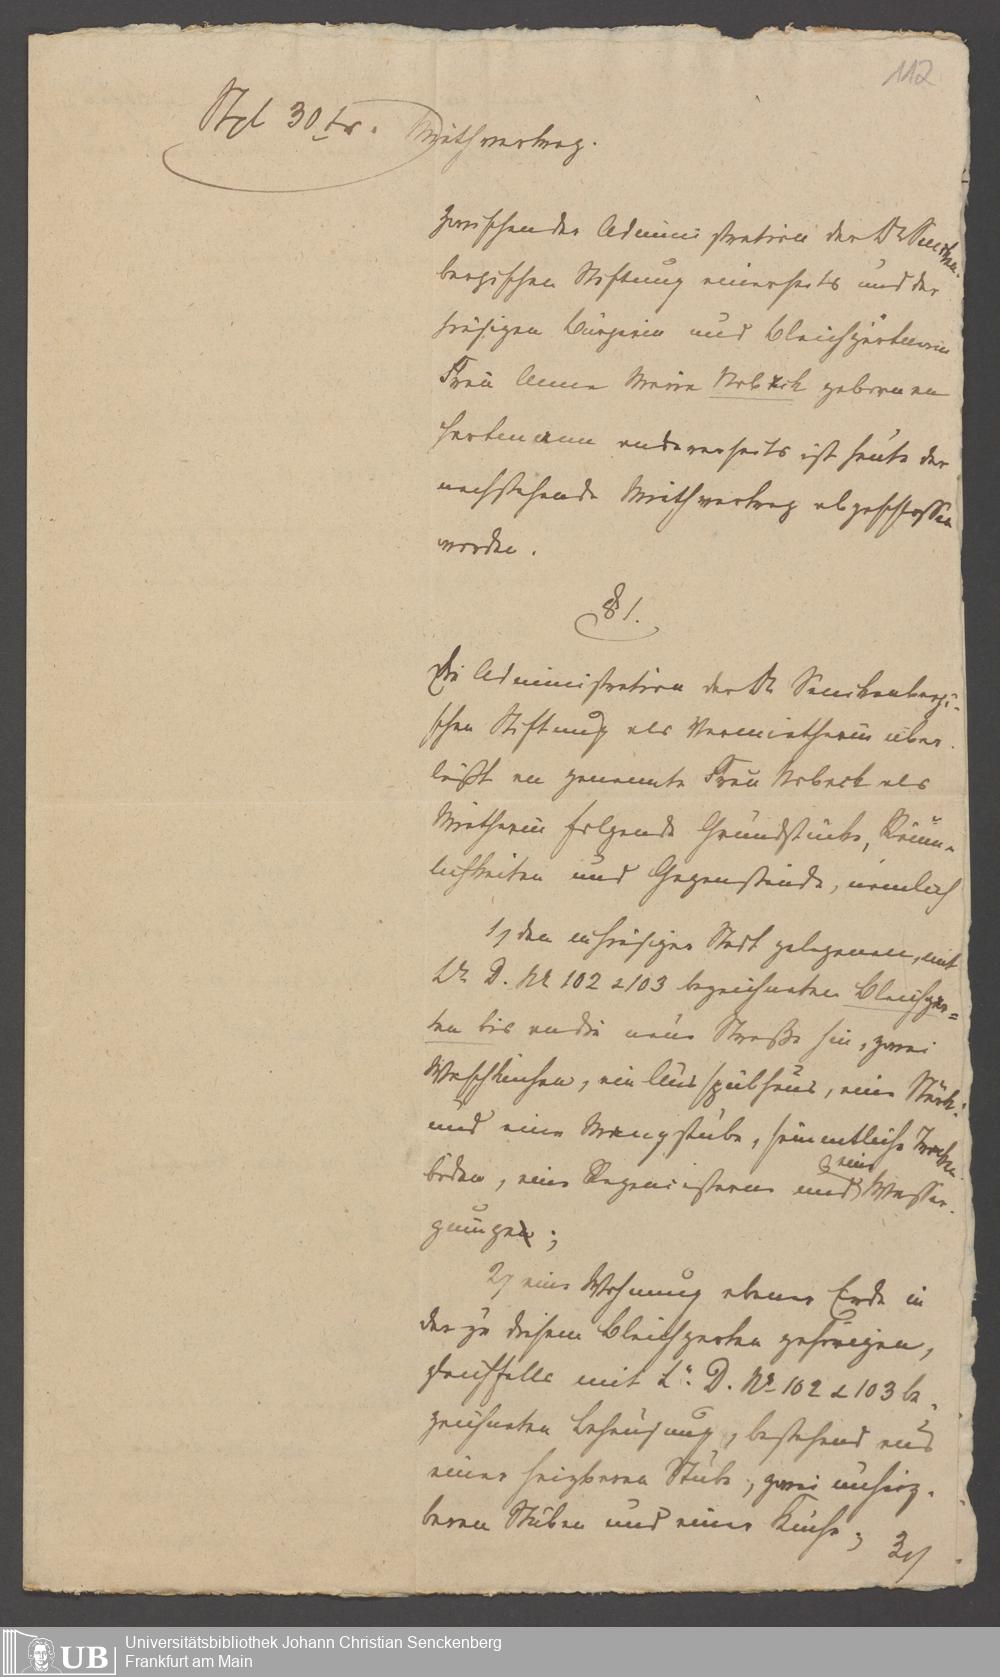 112
Stpl 30 kr. Miethvertrag.
zwischen der Administration der Dr Sencken-
bergischen Stiftung einerseits und der
hiesigen Bürgerin und Bleichgärtnerin
Frau Anna Maria Noback geborenen
Hartmann andererseits ist heute der
nachstehende Miethvertrag abgeschlossen
worden.
§ 1.
Die Administration der Dr Senckenbergi-
schen Stiftung als Vermietherin über-
läßt an genannte Frau Noback als
Mietherin folgende Grundstücke, Räum-
lichkeiten und Gegenstände, nämlich
1, den in hiesiger Stadt gelegenen, mit
Lr D. No 102 & 103 bezeichneten Bleichgar=
ten bis an die neue Straße hin, zwei
Waschküchen, ein Ausspülhaus, eine Stärk-
und eine Mangstube, sämmtliche Trocken-
böden, eine Regencisterne und eine Wasser-
pumpe;
2, eine Wohnung ebener Erde in
der zu diesem Bleichgarten gehörigen,
gleichfalls mit Lr. D. No 102 & 103 be-
zeichneten Behausung, bestehend aus
einer heizbaren Stube, zwei unheiz-
baren Stuben und einer Küche;
3,
UB
Universitätsbibliothek Johann Christian Senckenberg
Frankfurt am Main